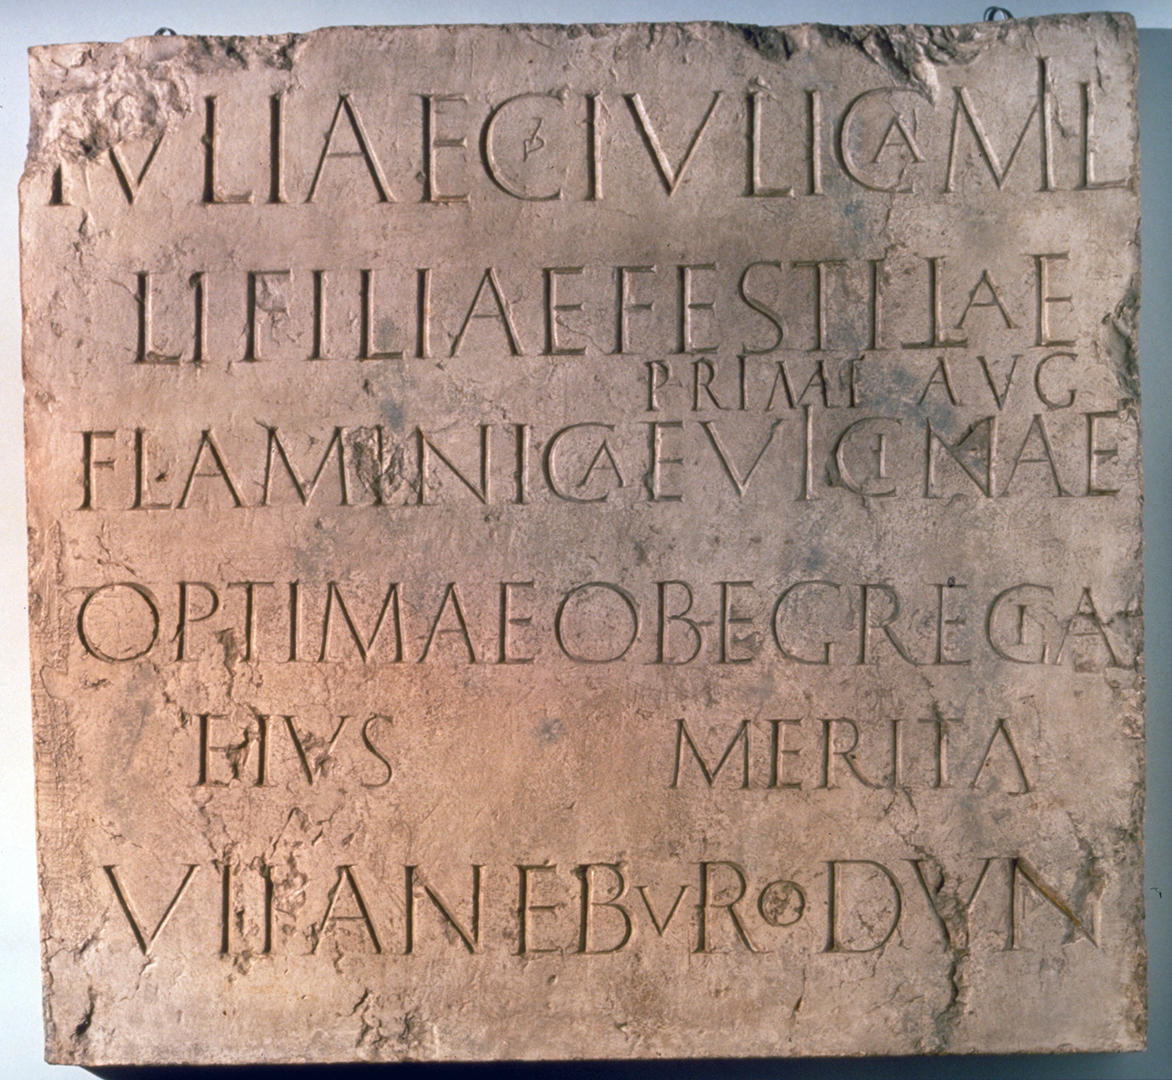 IVLIAE C IVLI CAMIL
LI FILIAE FESTILLAE
PRIMAE AVG
FLAMINICAE VICINAE
OPTIMAE OB EGREGIA
EIVS MERITA
VIKAN EBVRODVN